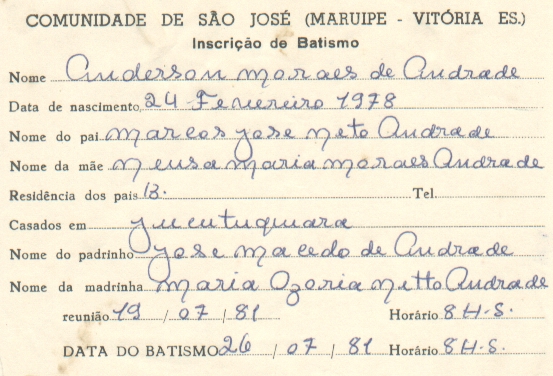 COMUNIDADE DE SÃO JOSÉ (MARUIPE - VITÓRIA ES.)
Inscrição de Batismo
Nome Anderson moraes de Andrade
Data de nascimento 24 Fevereiro 1978
Nome do pai marcos jose neto Andrade
Nome da mãe neusa maria moraes Andrade
Residência dos pais B. Tel.
Casados em jucutuquara
Nome do padrinho jose macedo de Andrade
Nome da madrinha maria Ozoria netto Andrade
reunião 19 / 07 / 81 Horário 8 H.S.
DATA DO BATISMO 26 / 07 / 81 Horário 8 H.S.